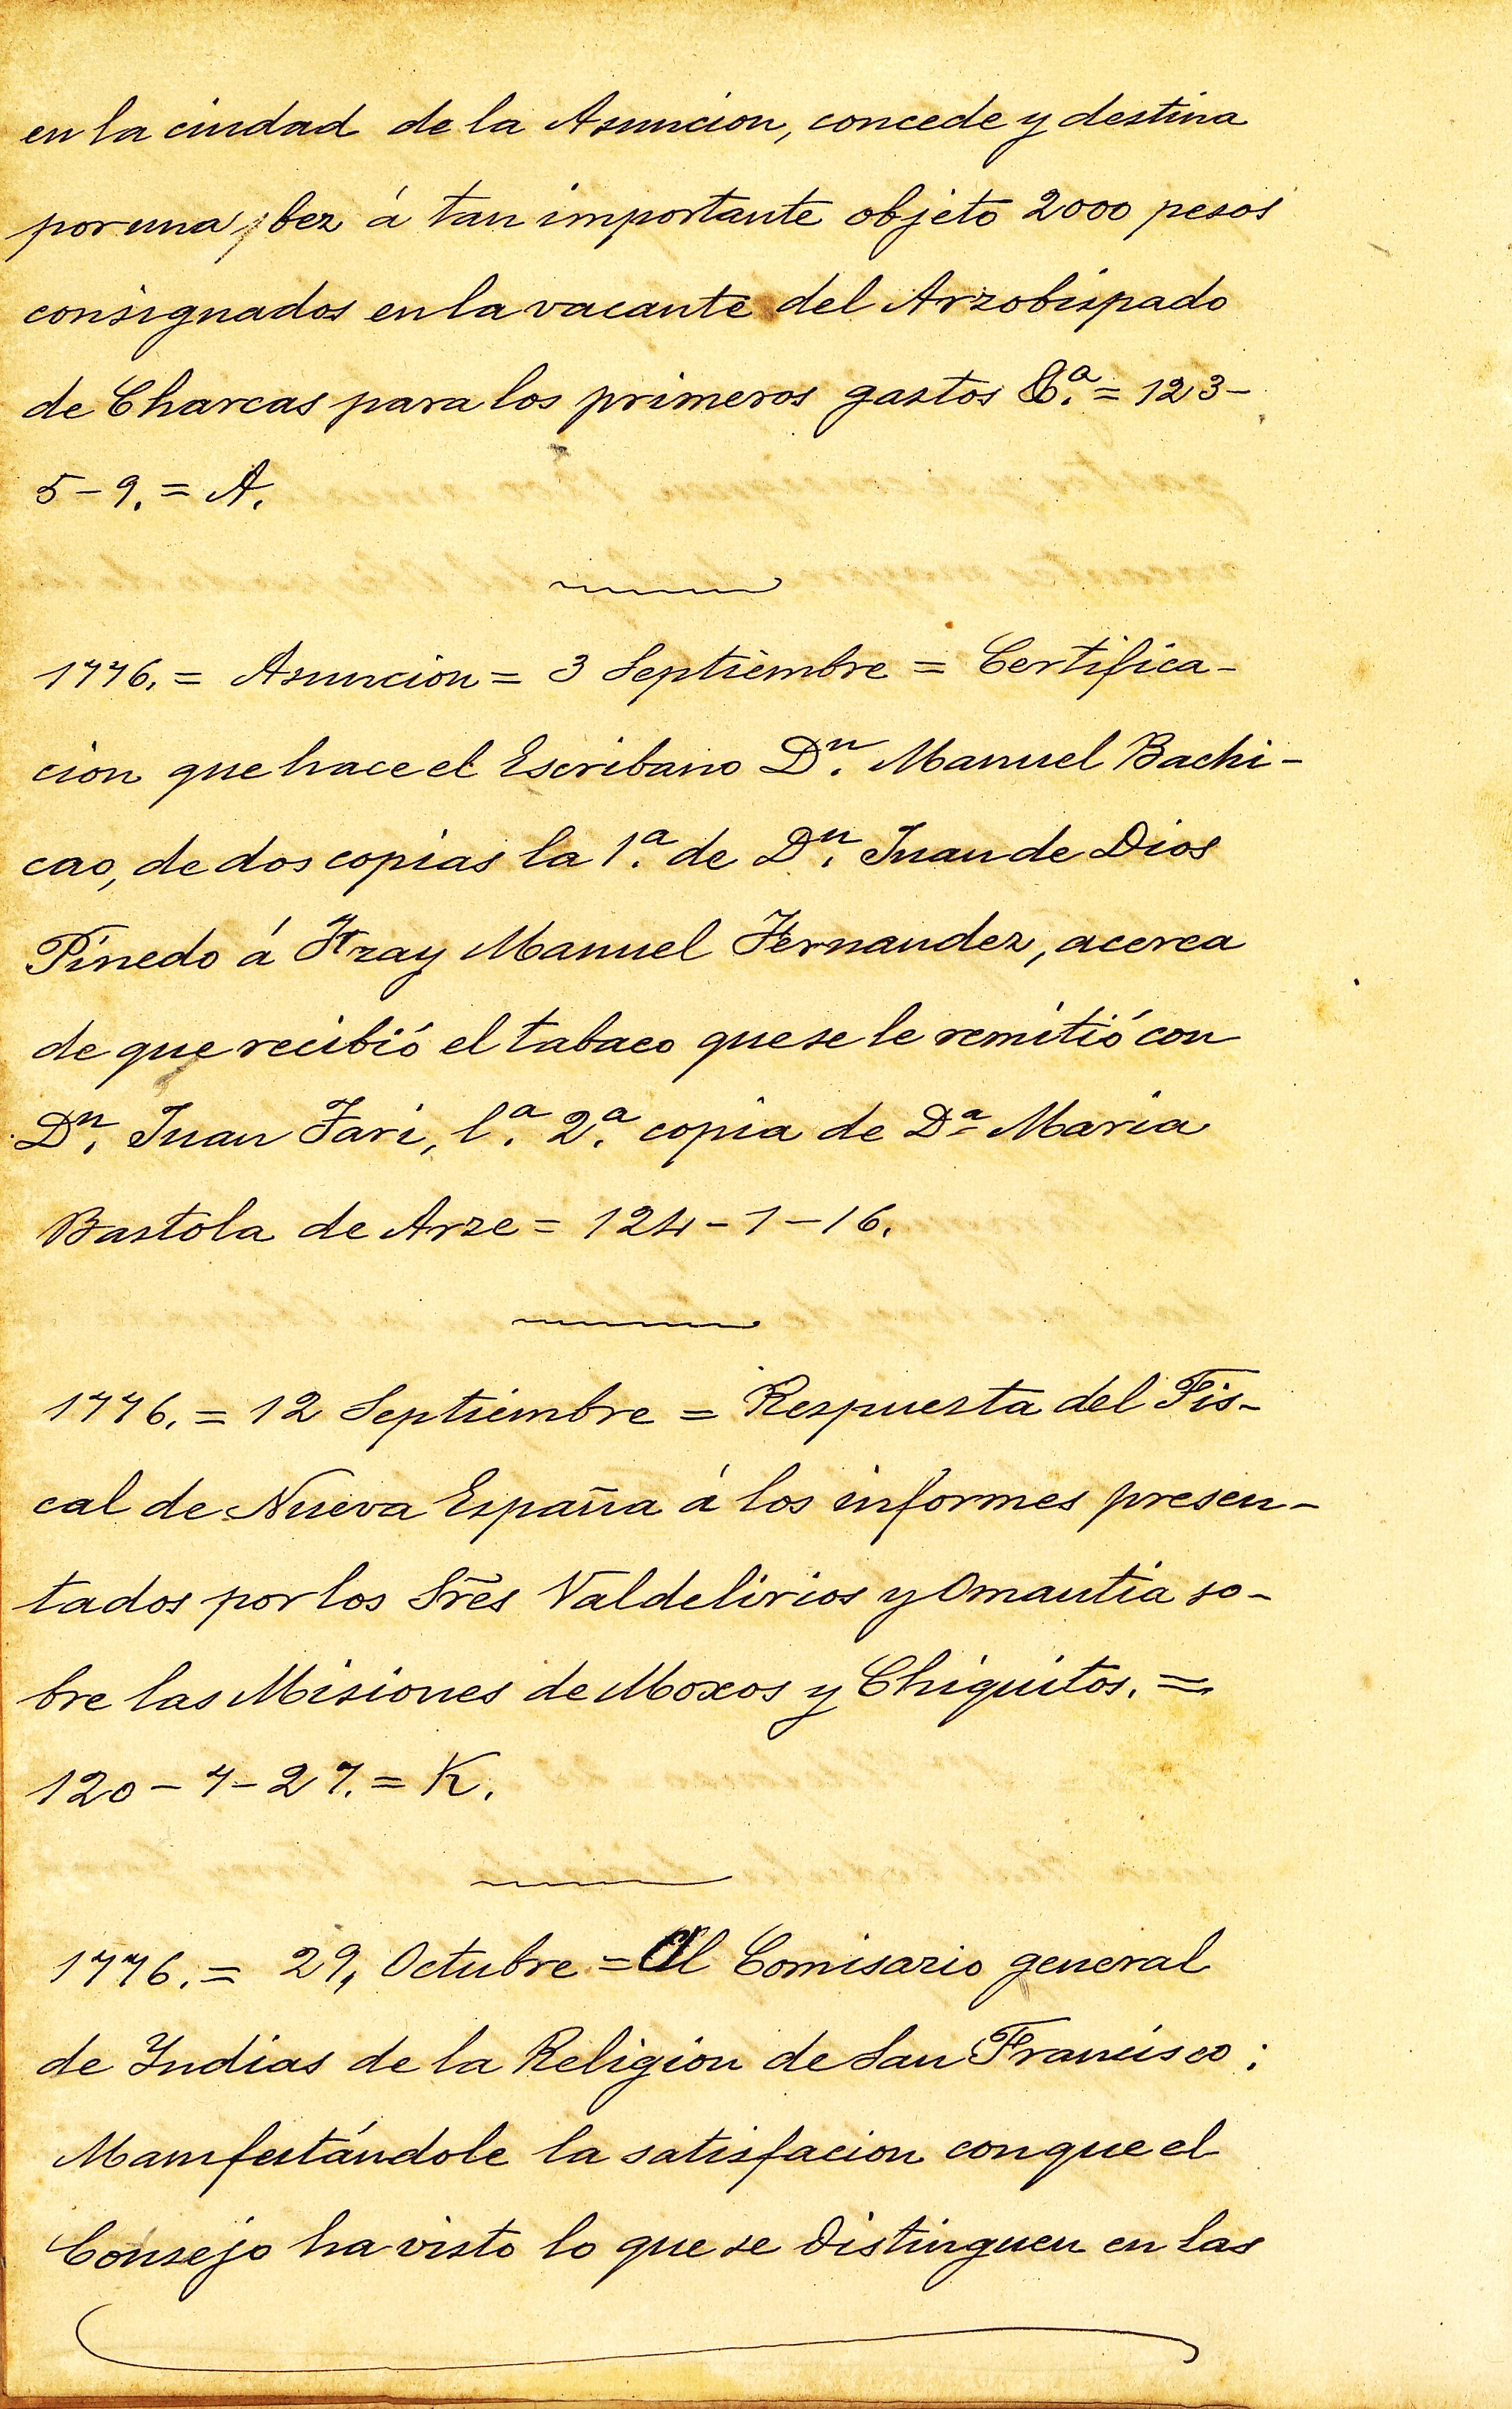 en la ciudad de la Asuncion, concede y destina
por una bez á tan importante objeto 2000 pesos
consignados en la vacante del Arzobispado
de Charcas para los primeros gastos &.ª = 123-
5-9. = A.
1776. = Asuncion = 3 Septiembre = Certifica-
cion que hace el Escribano D.n Manuel Bachi-
cao, de dos copias la 1.ª de D.n Juan de Dios
Pinedo á Fray Manuel Fernandez, acerca
de que recibió el tabaco que se le remitió con
D.n Juan Fari, l.a 2.ª copia de D.ª Maria
Bastola de Arze = 124-1-16.
1776. = 12 Septiembre = Respuesta del Fis-
cal de Nueva España á los informes presen-
tados por los Sres Valdelirios y Omantia so-
bre las Misiones de Moxos y Chiquitos. =
120-7-27. = K.
1776. = 29, Octubre = Al Comisario general
de Indias de la Religion de San Francisco:
Manifestándole la satisfacion con que el
Consejo ha visto lo que se distinguen en las